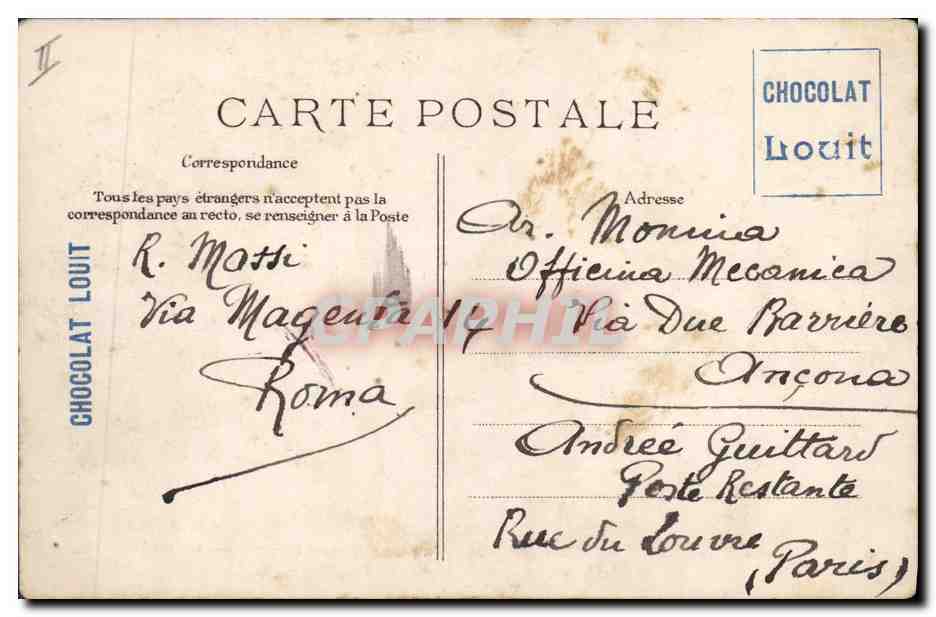 II
CARTE POSTALE
CHOCOLAT
Louit
Correspondance
Tous les pays étrangers n'acceptent pas la
correspondance au recto, se renseigner à la Poste
CHOCOLAT LOUIT
R. Massi
Via Magenta 14
Roma
CPAPHIL
Adresse
Ar. Monina
Officina Mecanica
Via Due Barrière
Ançona
Andreé Guittard
Poste Restante
Rue du Louvre
(Paris)